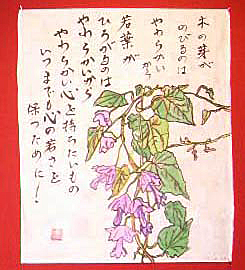 木の芽が
のびるのは
やわらかい
から
若葉が
ひろがるのは
やわらかいから
やわらかい心を持ちたいもの
いつまでも心の若さを
保つために！